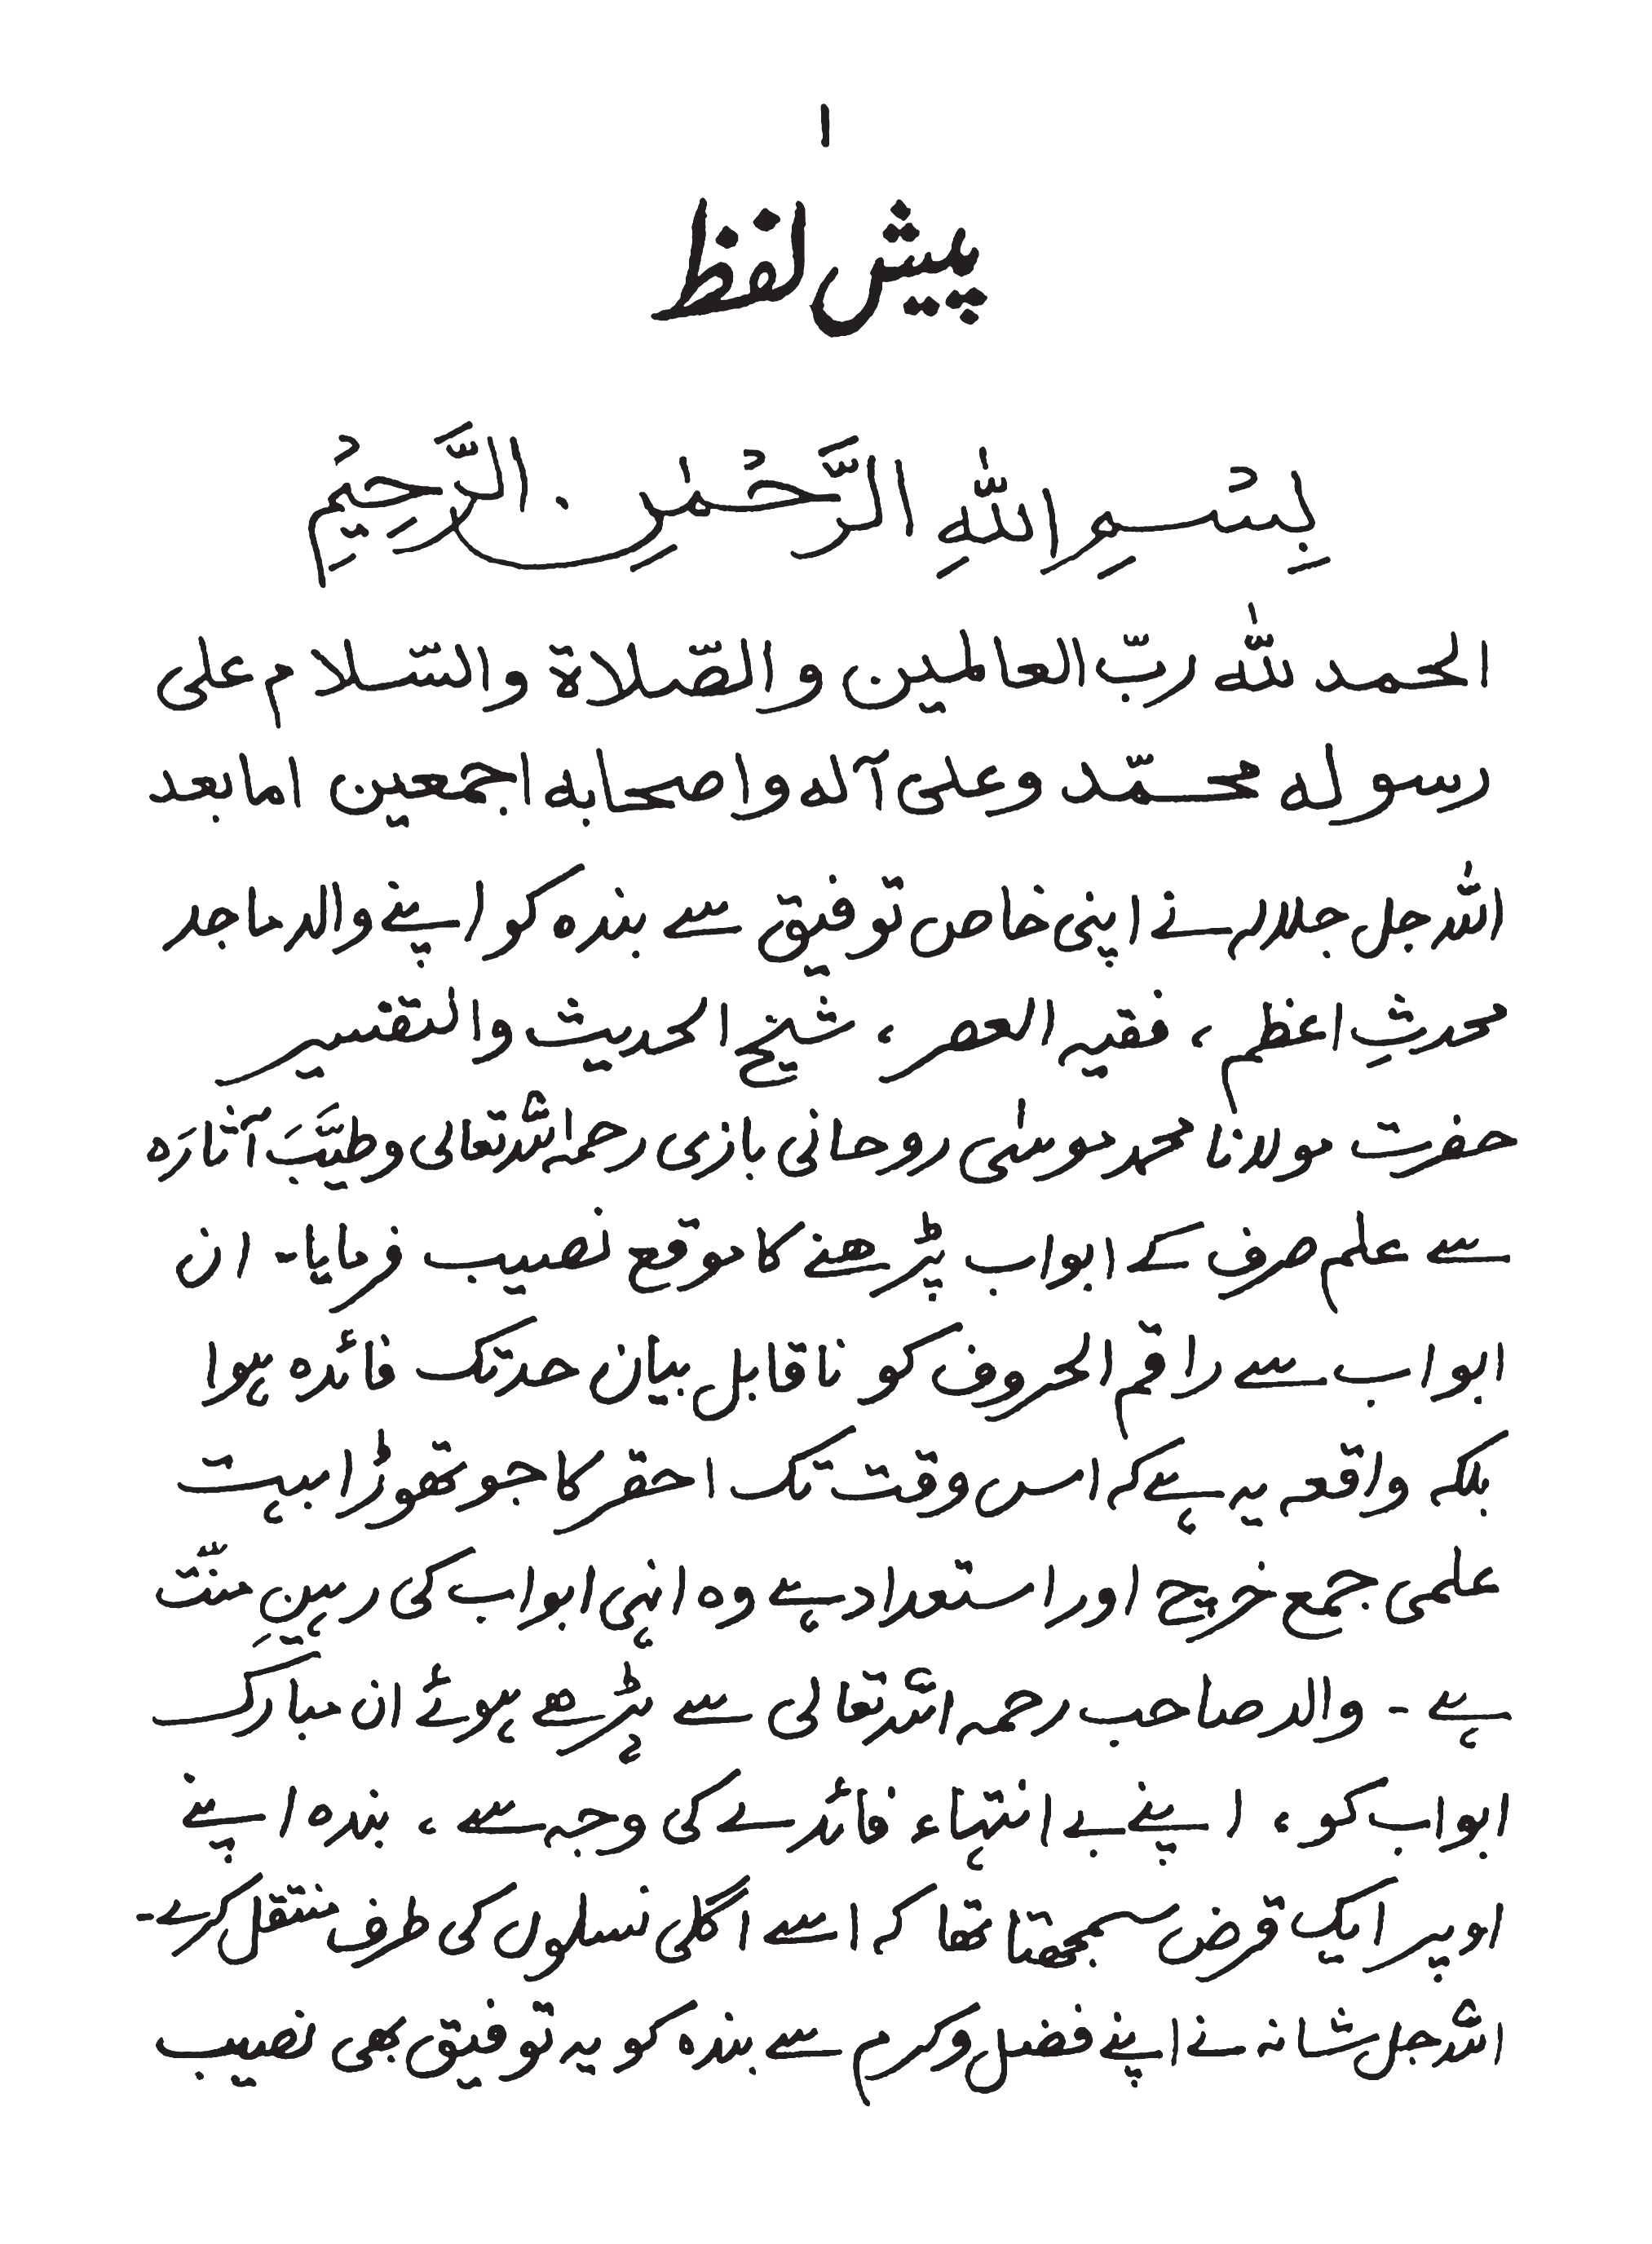 ۱
پیش لفظ
بِسْمِ اللّٰهِ الرَّحْمٰنِ الرَّحِیْمِ
الحمد للّٰه ربّ العالمین والصّلاة والسّلام علی
رسوله محمّد وعلی آله واصحابه اجمعین امابعد
اللہ جل جلالہ نے اپنی خاص توفیق سے بندہ کو اپنے والد ماجد
محدثِ اعظم ، فقیہ العصر ، شیخ الحدیث والتفسیر
حضرت مولانا محمد موسٰی روحانی بازی رحمہ اللہ تعالی وطیَّبَ آثارَہ
سے علم صرف کے ابواب پڑھنے کا موقع نصیب فرمایا۔ ان
ابواب سے راقم الحروف کو ناقابل بیان حد تک فائدہ ہوا
بلکہ واقعہ یہ ہے کہ اس وقت تک احقر کا جو تھوڑا بہت
علمی جمع خرچ اور استعداد ہے وہ انہی ابواب کی رہینِ منّت
ہے ۔ والد صاحب رحمہ اللہ تعالی سے پڑھے ہوئے ان مبارک
ابواب کو ، اپنے بے انتہاء فائدے کی وجہ سے ، بندہ اپنے
اوپر ایک قرض سمجھتا تھا کہ اسے اگلی نسلوں کی طرف منتقل کرے۔
اللہ جل شانہ نے اپنے فضل وکرم سے بندہ کو یہ توفیق بھی نصیب